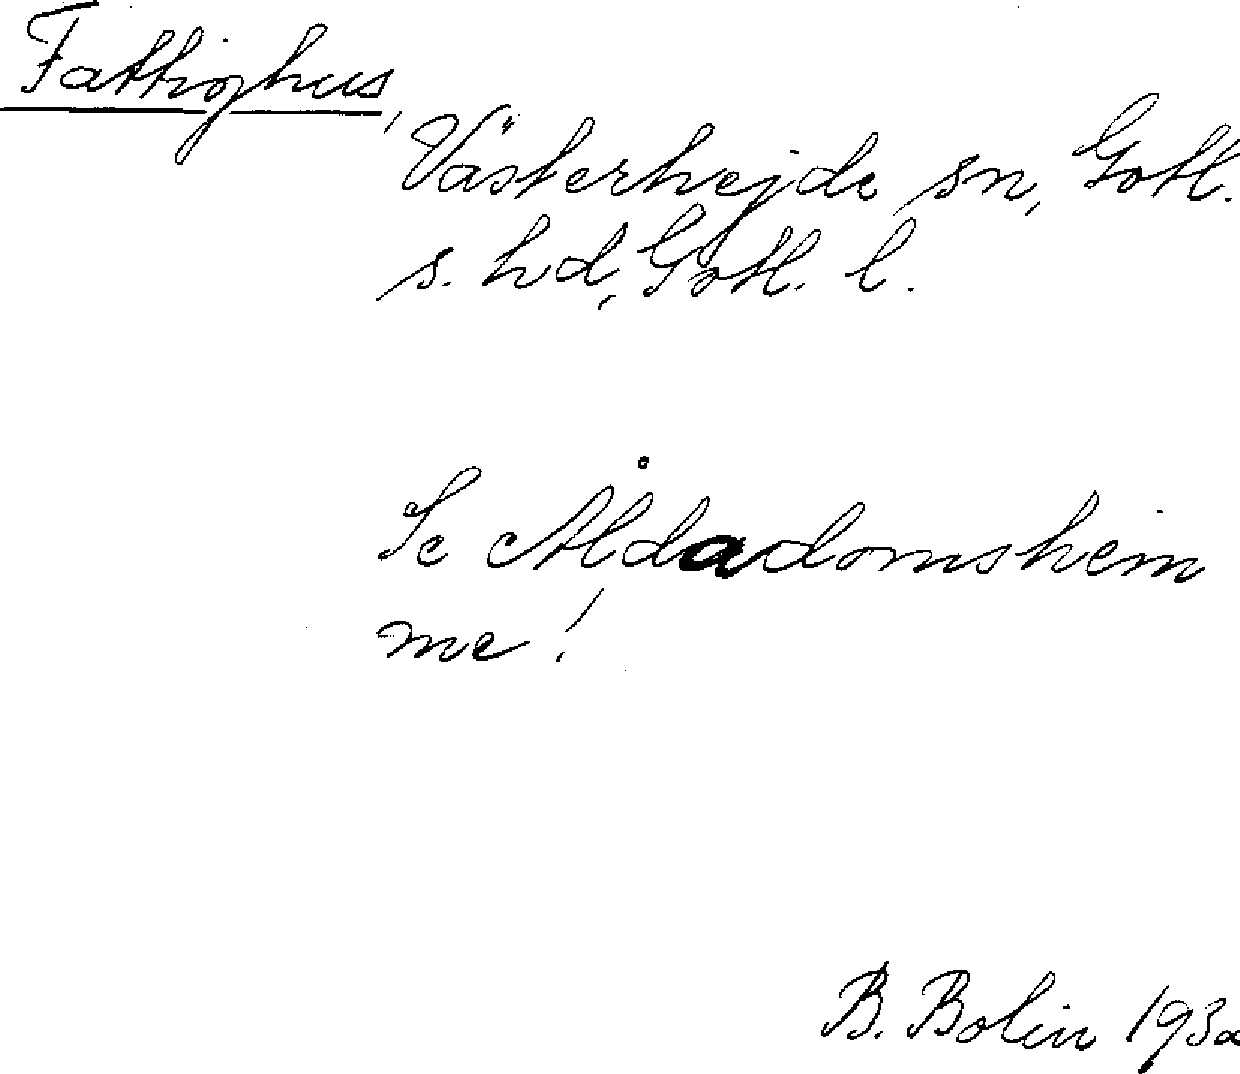 Fattighus,
Västerhejde sn, Gotl.
s. hd, Gotl. l.
Se Åldadomshem
me!
B. Bolin